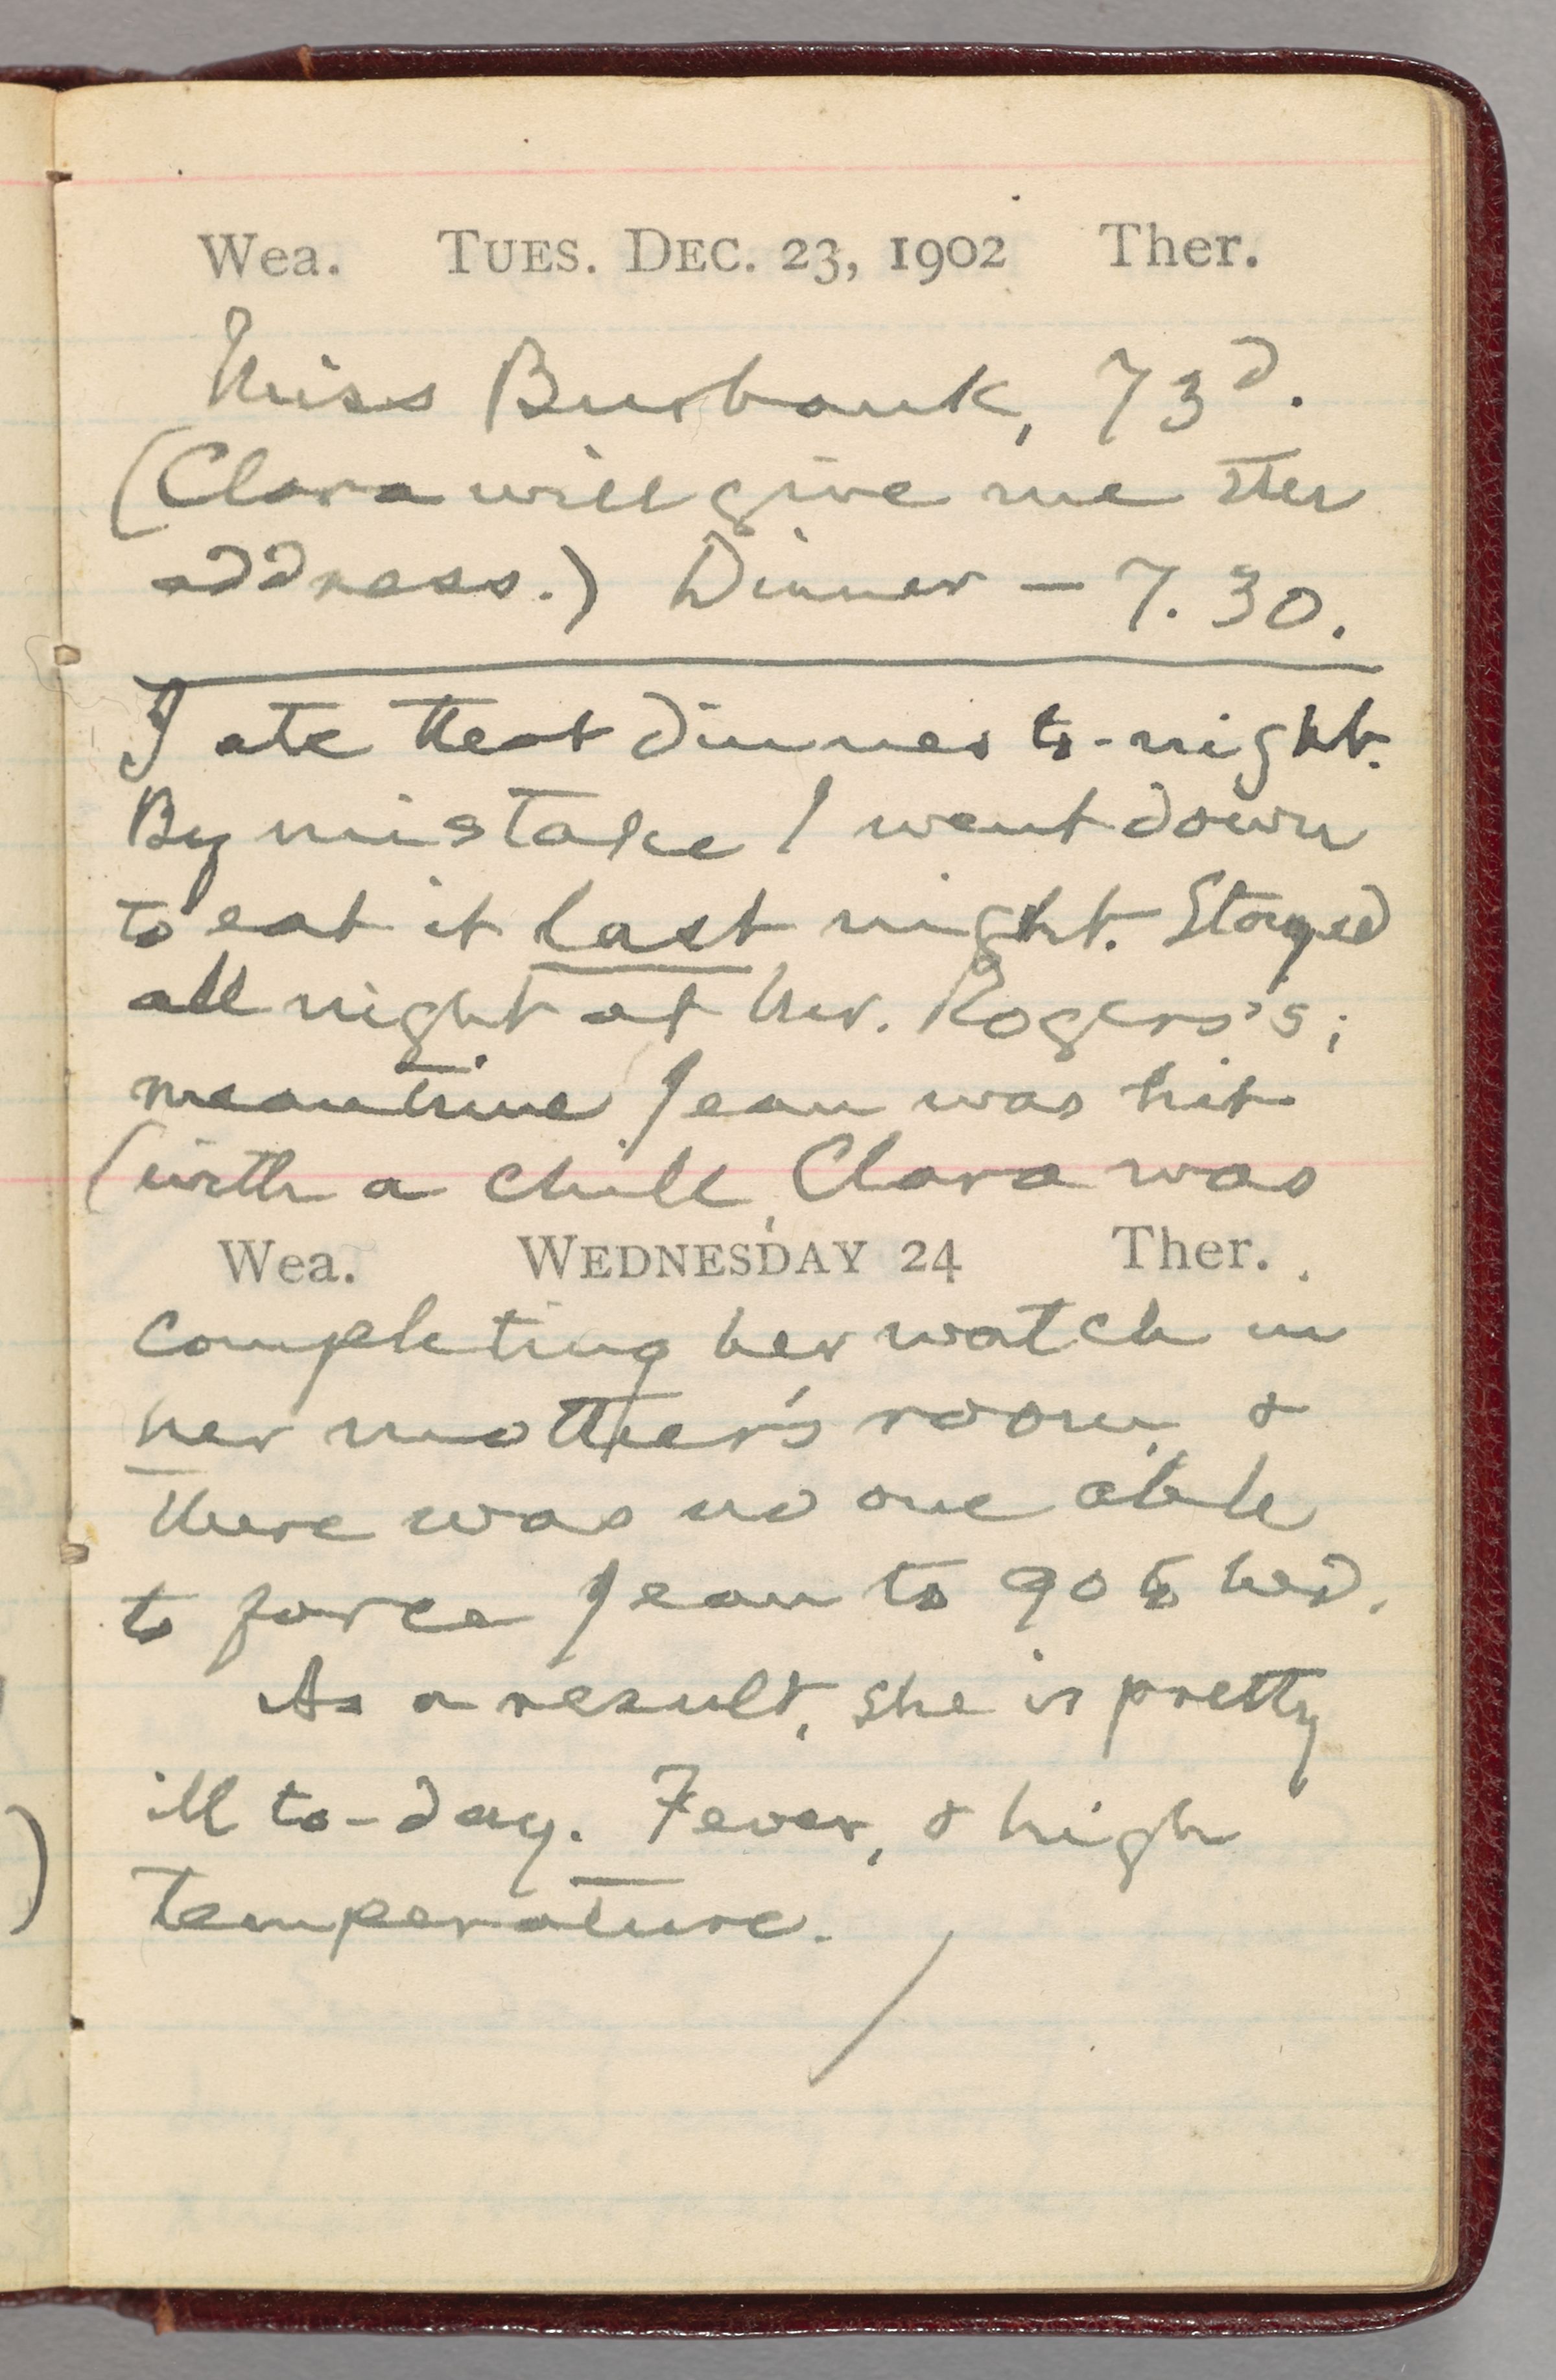 Wea. TUES. DEC. 23, 1902 Ther.
Miss Burbank, 73d.
(Clara will give me the
address.) Dinner — 7.30.
I ate that dinner to-night.
By mistake I went down
to eat it last night. Stayed
all night at Mr. Rogers's;
meantime Jean was hit
(with a chill, Clara was
Wea. WEDNESDAY 24 Ther.
completing her watch in
her mother's room, &
there was no one able
to force Jean to go to bed.
As a result, she is pretty
ill to-day. Fever, & high
temperature.
)